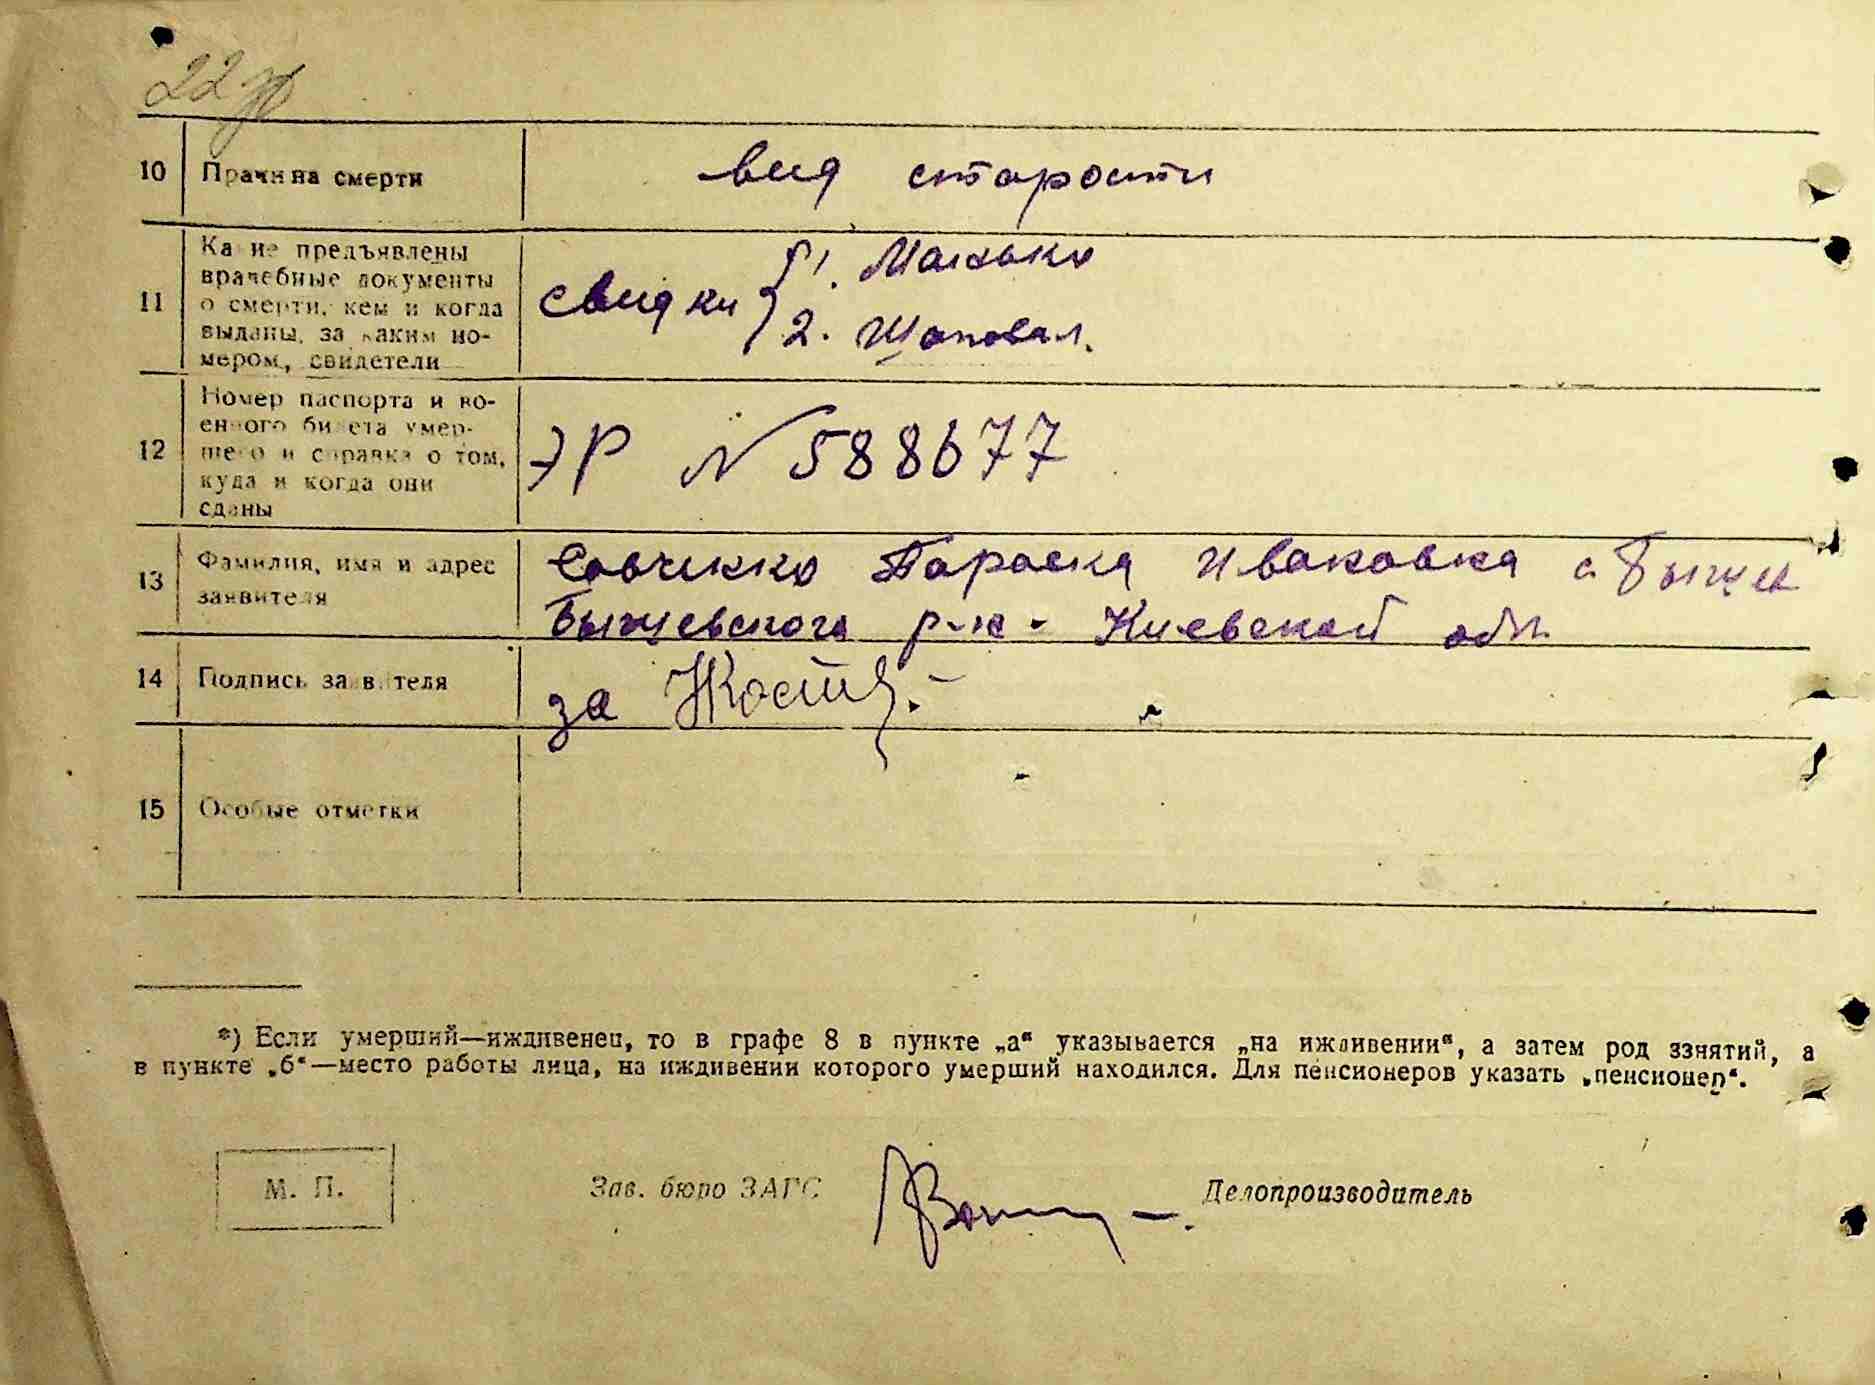 10 Причина смерти вид старости
11 Какие предъявлены
врачебные документы
о смерти, кем и когда
выданы, за каким но-
мером, свидетели
свидки 1.
2. Шаповал.
12 Номер паспорта и во-
енного билета умер-
шего и справка о том,
куда и когда они
сданы
ЭР N 588677
13 Фамилия, имя и адрес
заявителя
Савченко Параска Ивановна с. Бышев
Бышевского р-на Киевской обл.
14 Подпись заявителя за
15 Особые отметки
*) Если умерший—иждивенец, то в графе 8 в пункте „а“ указывается „на иждивении“, а затем род занятий, а
в пункте „б“—место работы лица, на иждивении которого умерший находился. Для пенсионеров указать „пенсионер“.
М. П. Зав. бюро ЗАГС Делопроизводитель